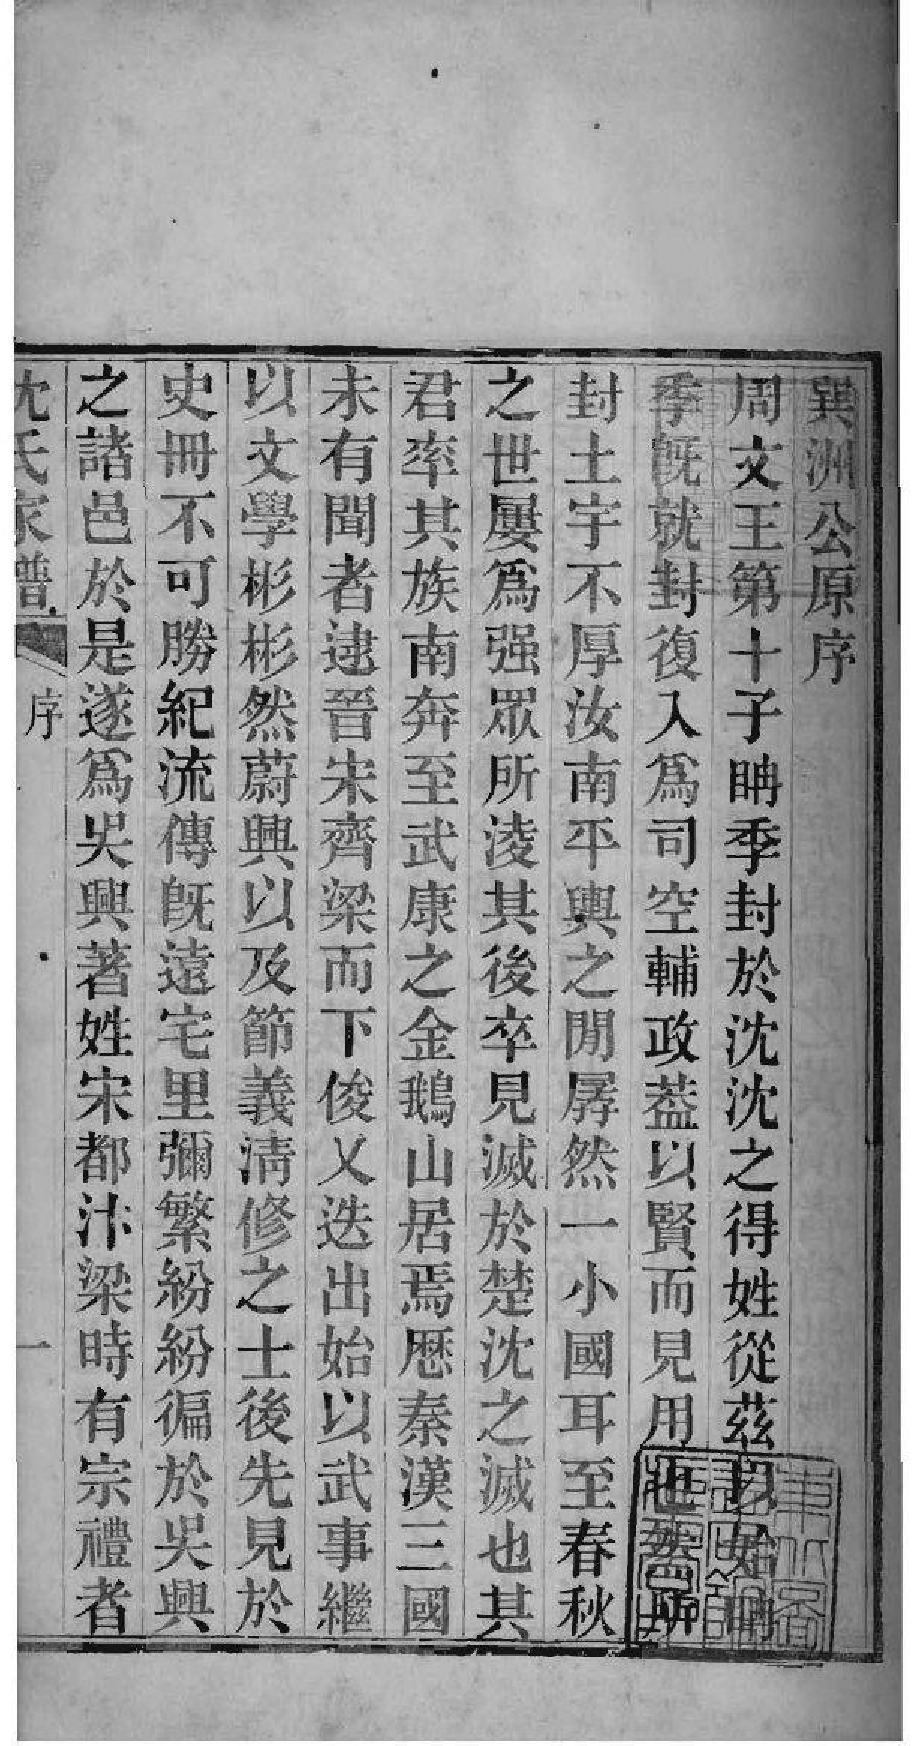 巽洲公原序
周文王第十子聃季封於沈沈之得姓從茲以始聃
季旣就封復入爲司空輔政葢以賢而見用也然所
封土宇不厚汝南平輿之閒孱然一小國耳至春秋
之世屢爲强眾所淩其後卒見滅於楚沈之滅也其
君率其族南奔至武康之金鵝山居焉歷秦漢三國
未有聞者逮晉宋齊梁而下俊乂迭出始以武事繼
以文學彬彬然蔚興以及節義清修之士後先見於
史冊不可勝紀流傳旣遠宅里彌繁紛紛徧於吳興
之諸邑於是遂爲吳興著姓宋都汴梁時有宗禮者
沈氏家譜 序 一